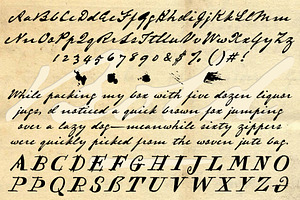 AaBbCcDdEeFfGgHhIiJjKkLlMm
NnOoPpQqRrSsTtUuVvWwXxYyZz
1234567890&$%()#!
While packing my box with five dozen liquor
jugs, I noticed a quick brown fox jumping
over a lazy dog—meanwhile sixty zippers
were quickly picked from the woven jute bag.
ABCDEFGHIJLMNO
PÞQRSßTUVWXYZ